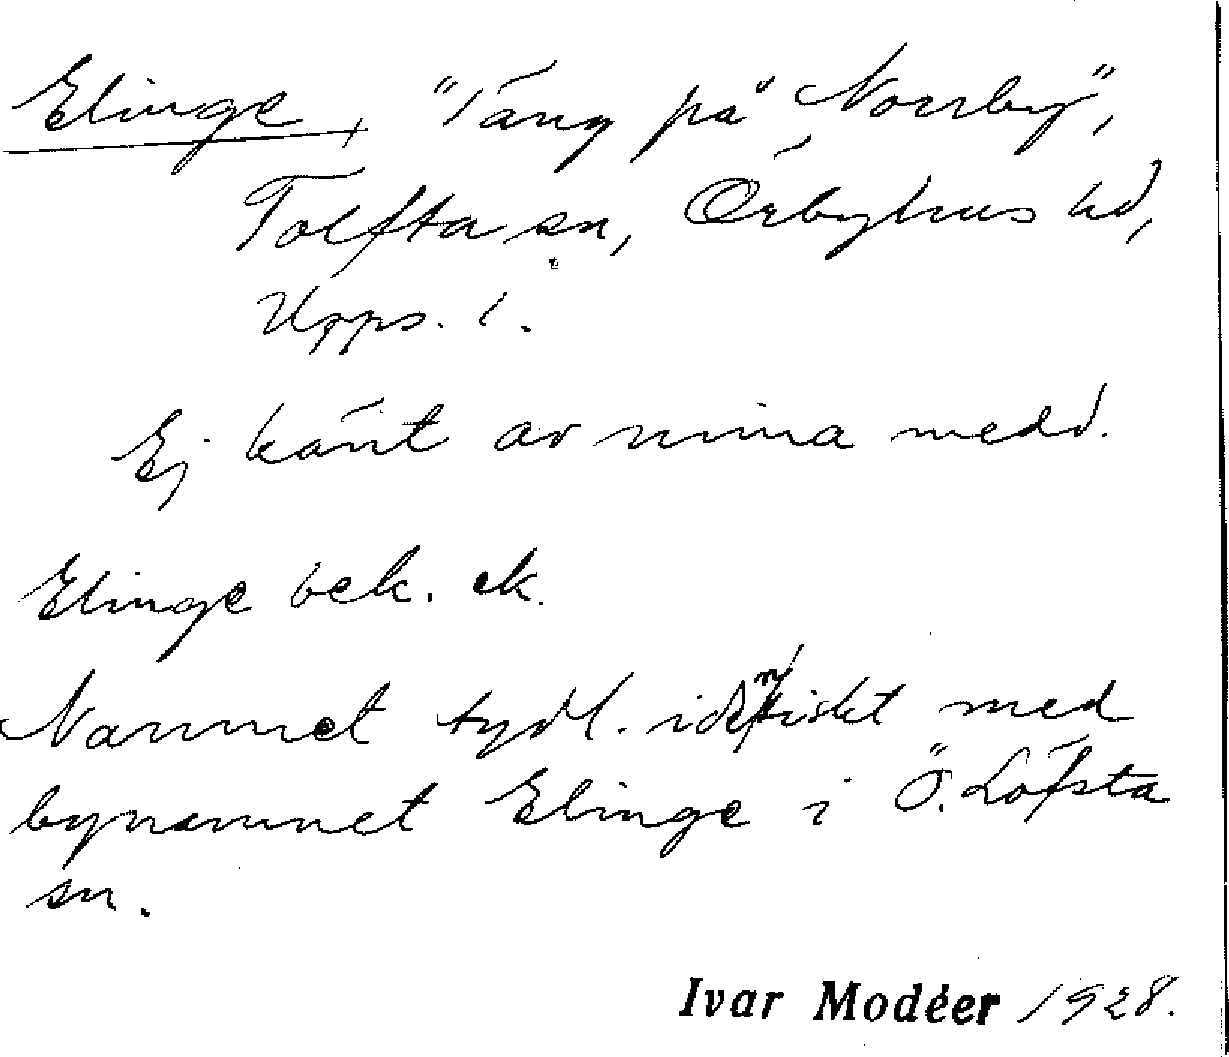 Elinge, "Täng på Norrby",
Tolfta sn, Örbyhus hd,
Upps. l.
Ej känt av mina medd.
Elinge bek. ek.
Namnet tydl. identiskt med
bynamnet Elinge i Ö. Löfsta
sn.
Ivar Modéer 1928.